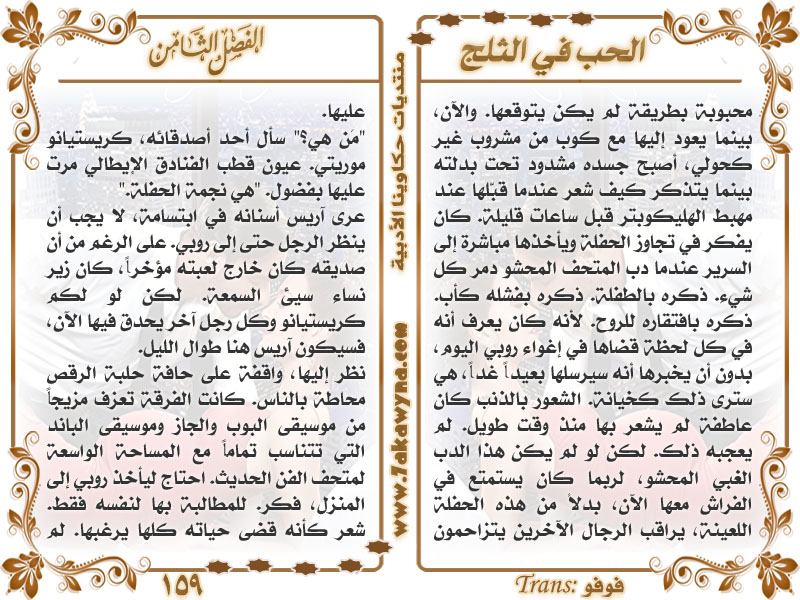 الحب في الثلج
محبوبة بطريقة لم يكن يتوقعها. والآن،
بينما يعود إليها مع كوب من مشروب غير
كحولي، أصبح جسده مشدود تحت بدلته
بينما يتذكر كيف شعر عندما قبّلها عند
مهبط الهليكوبتر قبل ساعات قليلة. كان
يفكر في تجاوز الحفلة ويأخذها مباشرة إلى
السرير عندما دب المتحف المحشو دمر كل
شيء. ذكره بالطفلة. ذكره بفشله كأب.
ذكره بافتقاره للروح. لأنه كان يعرف أنه
في كل لحظة قضاها في إغواء روبي اليوم،
بدون أن يخبرها أنه سيرسلها بعيداً غداً، هي
سترى ذلك كخيانة. الشعور بالذنب كان
عاطفة لم يشعر بها منذ وقت طويل. لم
يعجبه ذلك. لكن لو لم يكن هذا الدب
الغبي المحشو، لربما كان يستمتع في
الفراش معها الآن، بدلاً من هذه الحفلة
اللعينة، يراقب الرجال الآخرين يتزاحمون
Trans: فوفو
منتديات حكاوينا الأدبية
www.7akawyna.com
الفصل الثامن
عليها.
"مَن هي؟" سأل أحد أصدقائه، كريستيانو
موريتي. عيون قطب الفنادق الإيطالي مرت
عليها بفضول. "هي نجمة الحفلة."
عرى آريس أسنانه في ابتسامة، لا يجب أن
ينظر الرجل حتى إلى روبي. على الرغم من أن
صديقه كان خارج لعبته مؤخراً، كان زير
نساء سيئ السمعة. لكن لو لكم
كريستيانو وكل رجل آخر يحدق فيها الآن،
فسيكون آريس هنا طوال الليل.
نظر إليها، واقفة على حافة حلبة الرقص
محاطة بالناس. كانت الفرقة تعزف مزيجاً
من موسيقى البوب والجاز وموسيقى الباند
التي تتناسب تماماً مع المساحة الواسعة
لمتحف الفن الحديث. احتاج ليأخذ روبي إلى
المنزل، فكر. للمطالبة بها لنفسه فقط.
شعر كأنه قضى حياته كلها يرغبها. لم
١٥٩